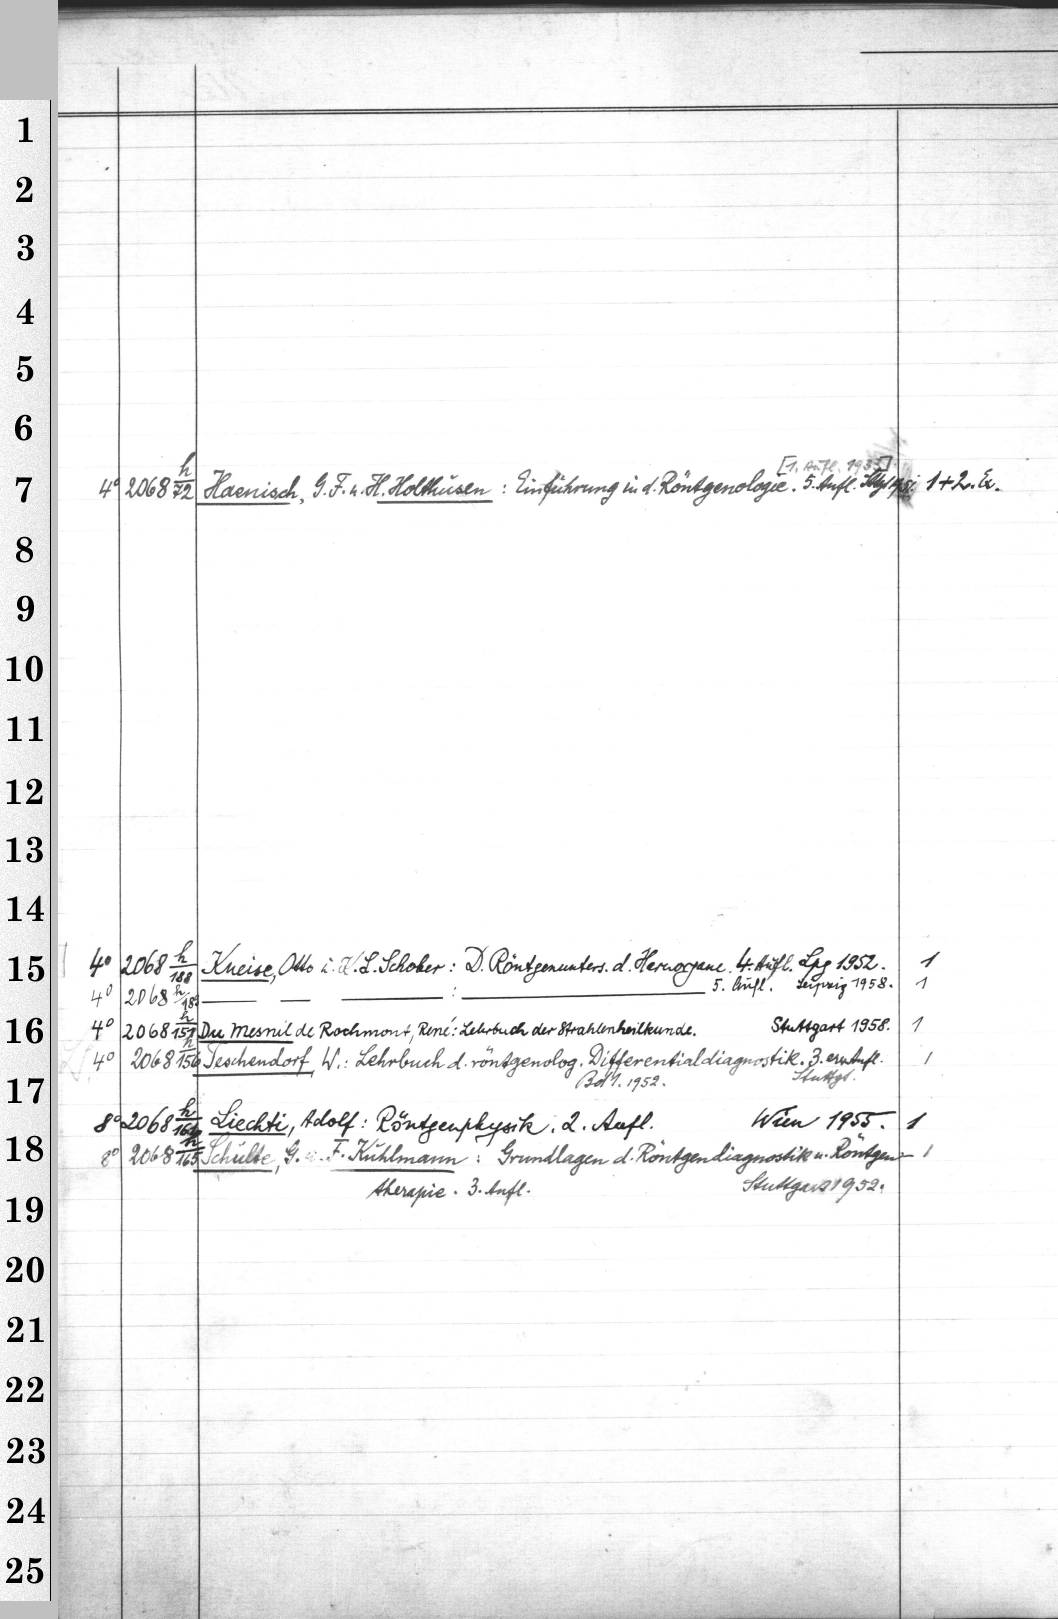 1
2
3
4
5
6
[1. Aufl. 1933]
7 4° 2068 h/72 Haenisch, G. F. u. H. Holthusen : Einführung in d. Röntgenologie. 5. Aufl. Stgt 1951. 1+2. Ex.
8
9
10
11
12
13
14
15 4° 2068 h/188 Kneise, Otto u. K. L. Schober : D. Röntgenunters. d. Harnorgane. 4. Aufl. Lpg 1952. 1
4° 2068 h/188 — — — : — 5. Aufl. Leipzig 1958. 1
16 4° 2068 h/151 Du Mesnil de Rochmont, René: Lehrbuch der Strahlenheilkunde. Stuttgart 1958. 1
4° 2068 h/156 Teschendorf, W.: Lehrbuch d. röntgenolog. Differentialdiagnostik. 3. erw. Aufl. 1
17 Bd 1. 1952. Stuttgt.
8° 2068 h/164 Liechti, Adolf: Röntgenphysik. 2. Aufl. Wien 1955. 1
18 8° 2068 h/165 Schulte, G. u. F. Kuhlmann : Grundlagen d. Röntgendiagnostik u. Röntgen- 1
therapie. 3. Aufl. Stuttgart 1952.
19
20
21
22
23
24
25